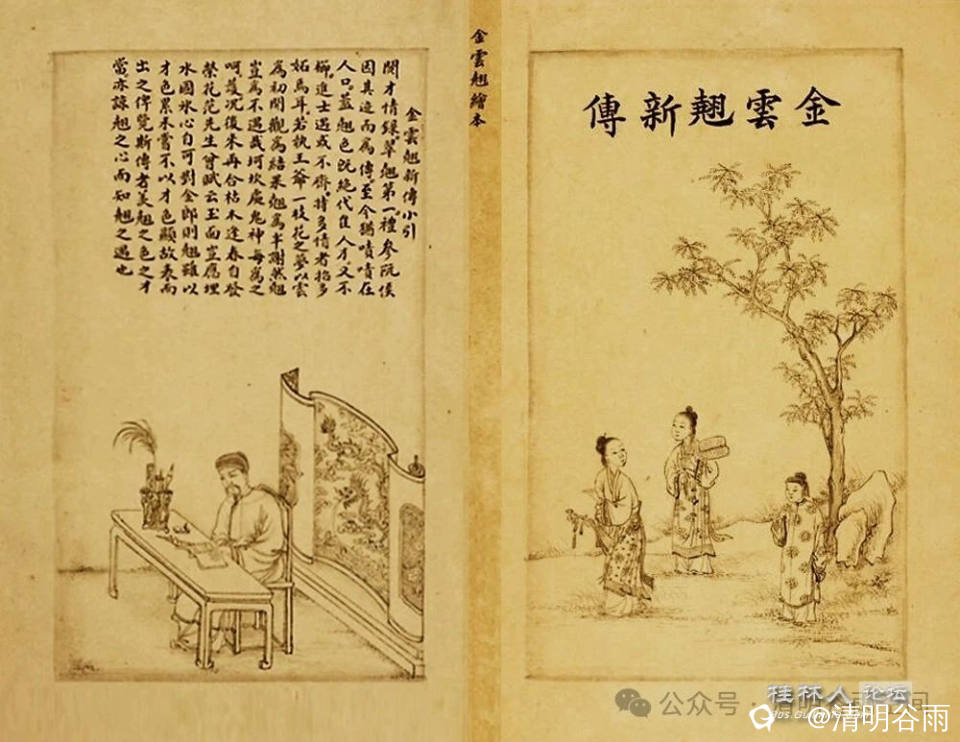 金雲翹新傳
金雲翹繪本
金雲翹新傳小引
閱才情錄翠翹第一禮參阮侯
因其迹而為傳至今猶嘖嘖在
人口蓋翹色既絕代隹人才又不
櫛進士遇或不齊多情者招多
妬焉耳若執王爺一枝花之夢以雲
為初開觀為結果翹為半謝然翹
豈為不遇哉坷坎處鬼神每為之
呵護況復來再合枯木逢春自發
榮花范先生曾賦云玉面豈應埋
水國冰心自可對金郎則翹雖以
才色累未嘗不以才色顯故表而
出之俾覽斯傳者羨翹之色之才
當亦諒翹之心而知翹之遇也
公众号
桂林人论坛
@清明谷雨